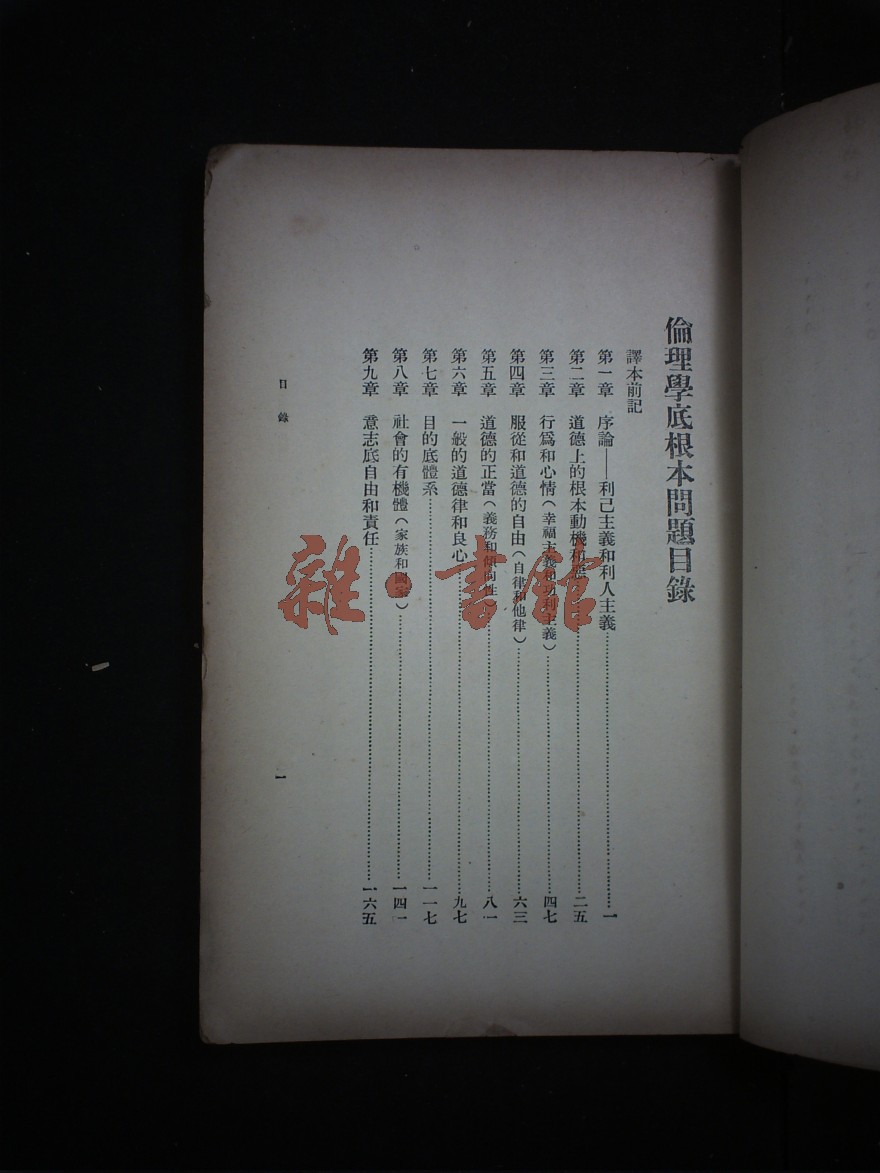 倫理學底根本問題目錄
譯本前記
第一章 序論——利己主義和利人主義……一
第二章 道德上的根本動機和惡……二五
第三章 行爲和心情(幸福主義和功利主義)……四七
第四章 服從和道德的自由(自律和他律)……六三
第五章 道德的正當(義務和傾向性)……八一
第六章 一般的道德律和良心……九七
第七章 目的底體系……一一七
第八章 社會的有機體(家族和國家)……一四一
第九章 意志底自由和責任……一六五
目錄
一
雜·書館